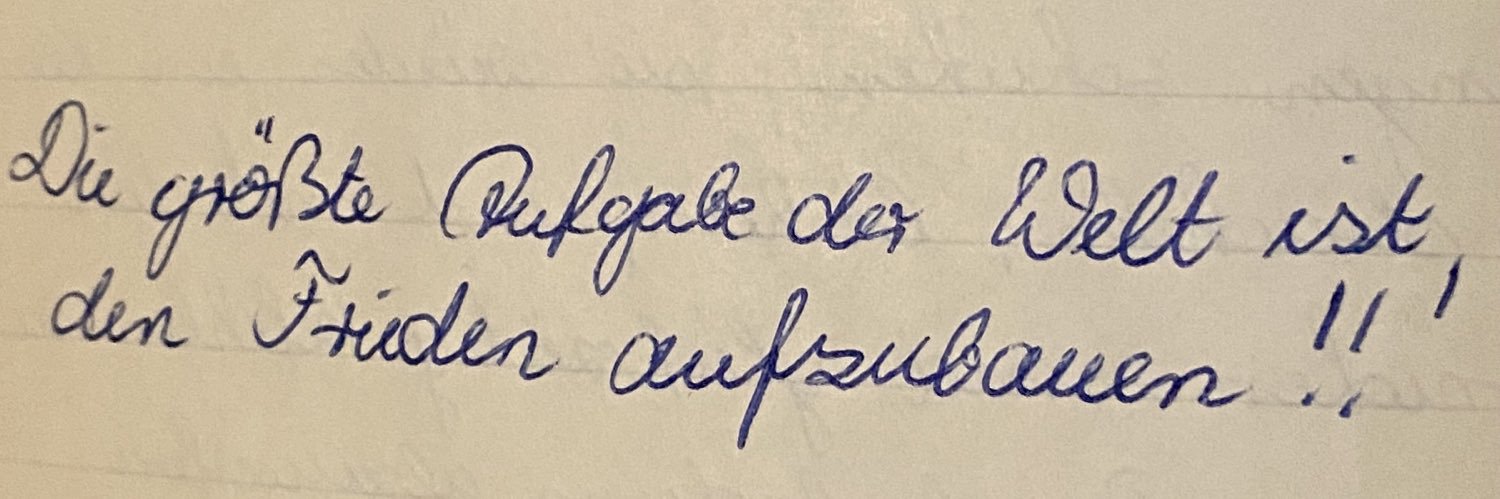 Die größte Aufgabe der Welt ist,
den Frieden aufzubauen!!